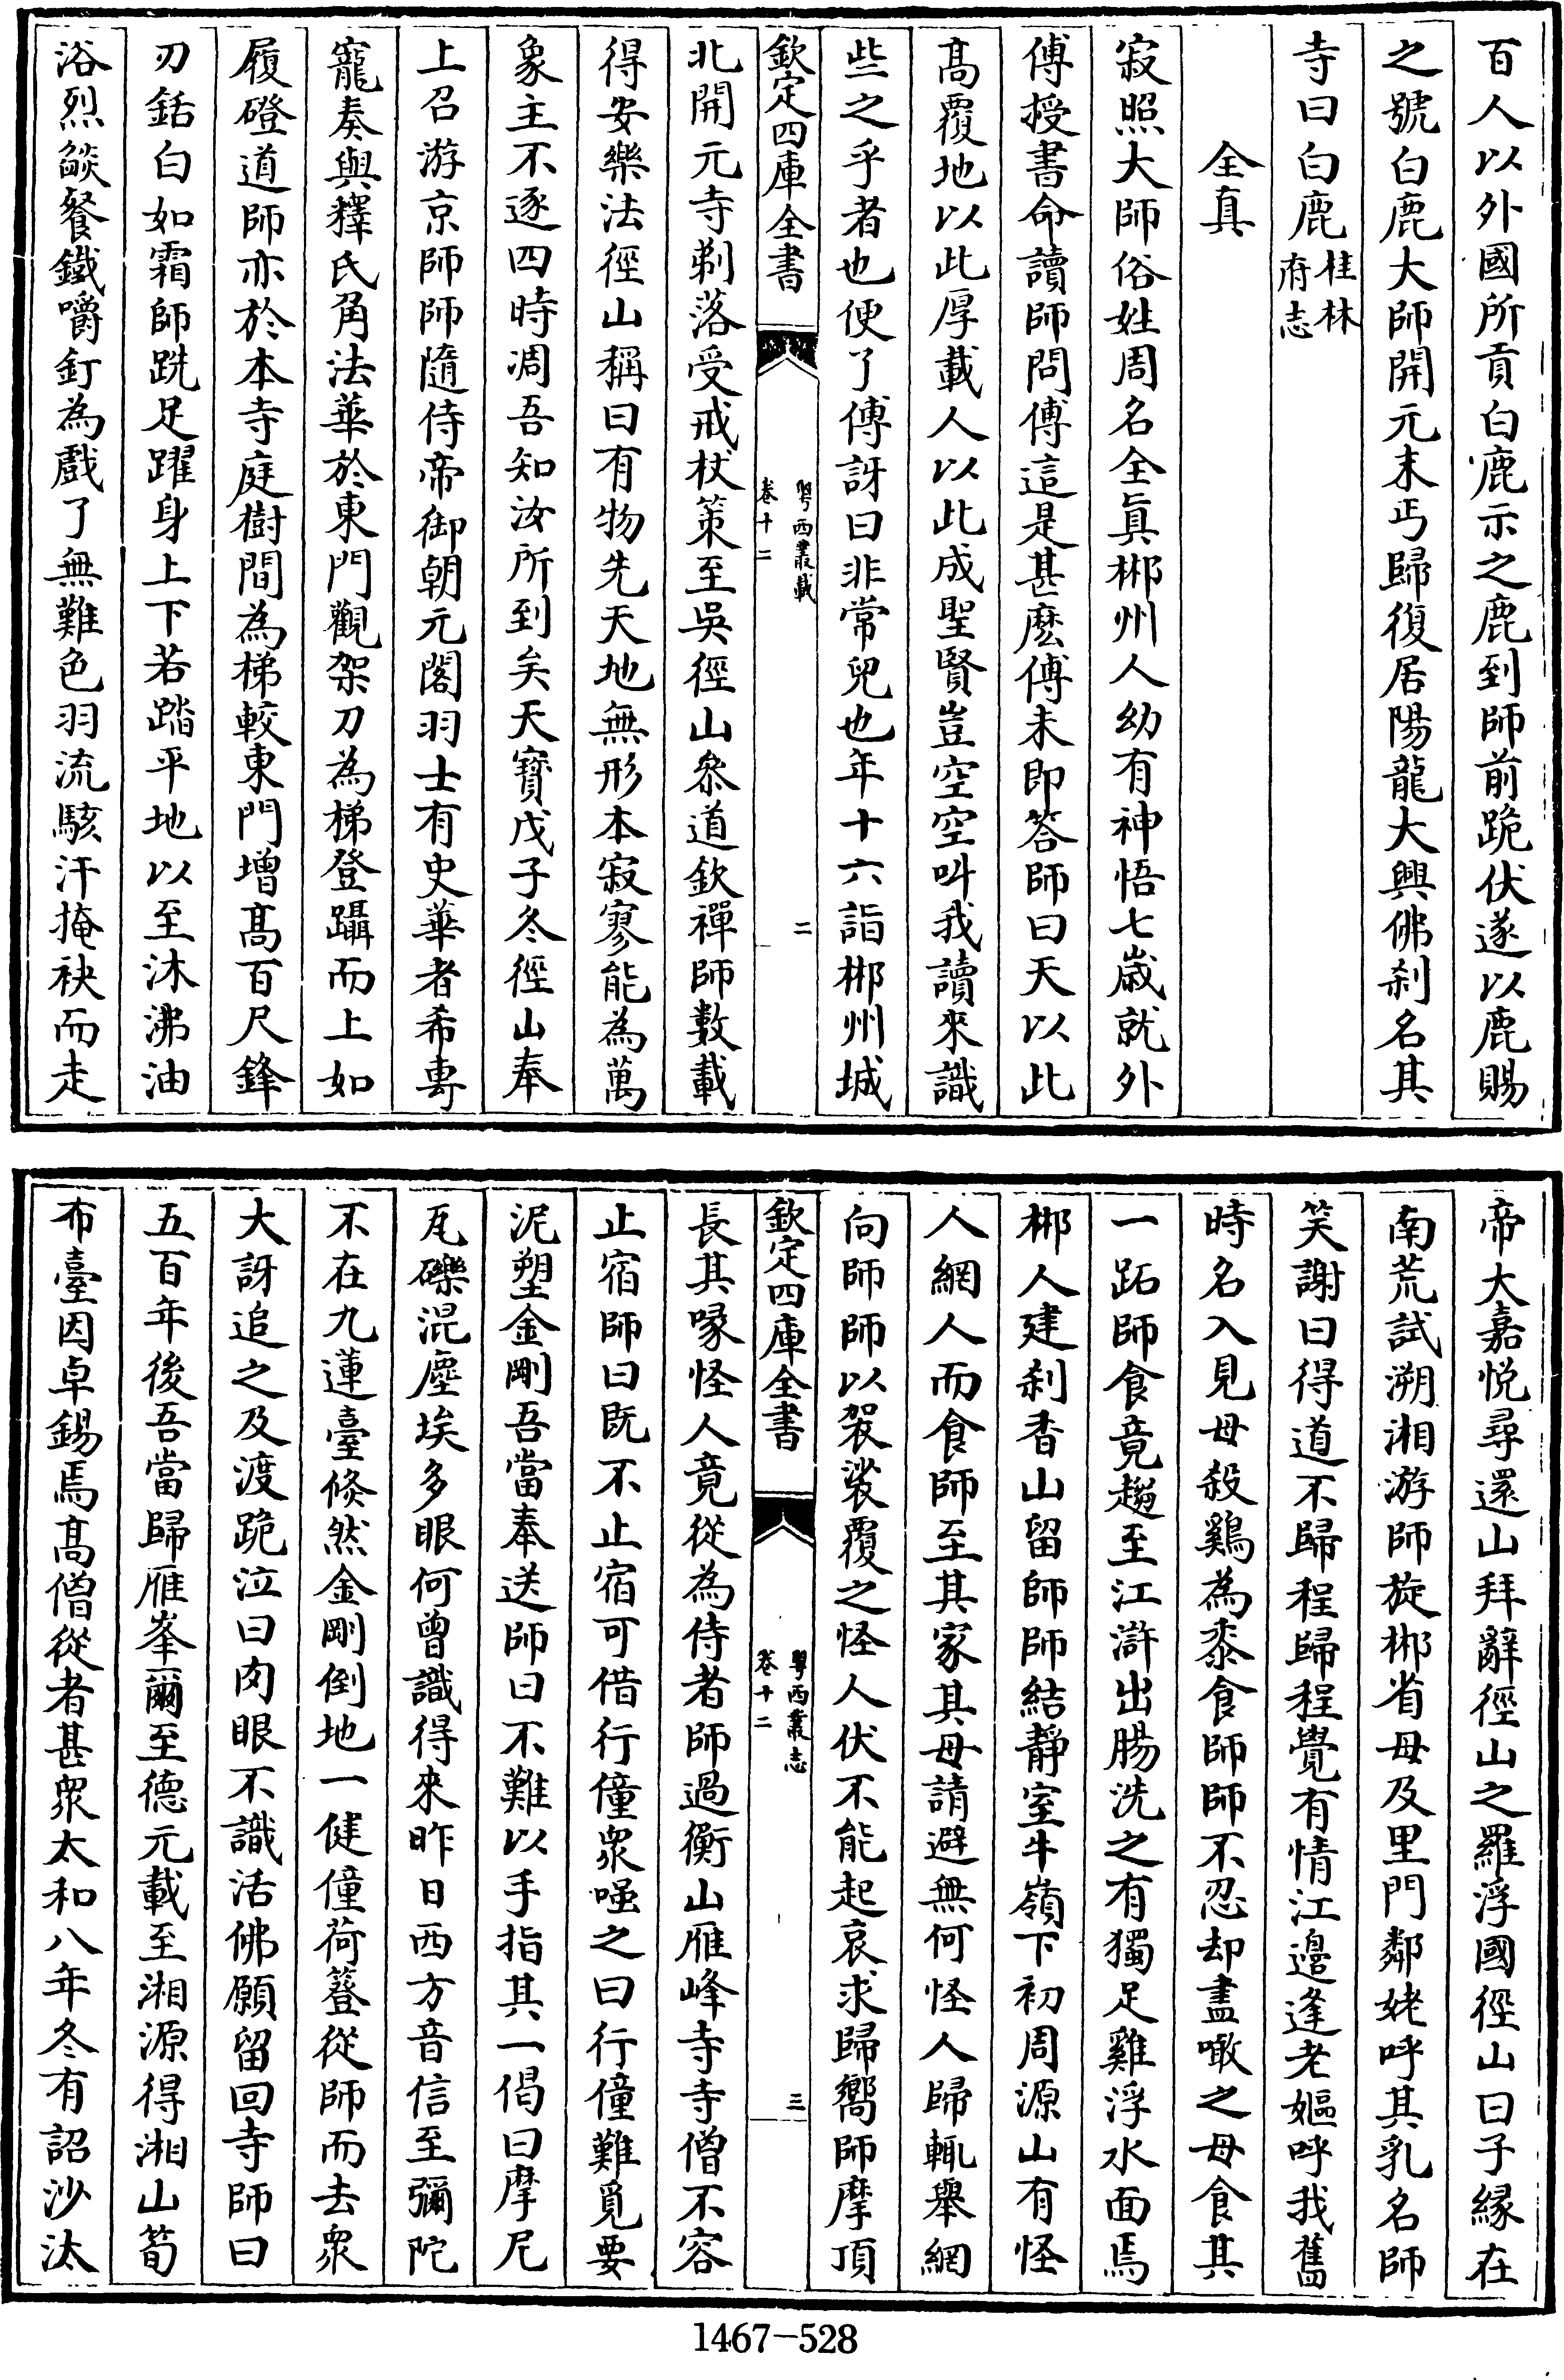 百人以外國所貢白鹿示之鹿到師前跪伏遂以鹿賜
之號白鹿大師開元末丐歸復居陽龍大興佛刹名其
寺曰白鹿桂林府志
全真
寂照大師俗姓周名全眞郴州人幼有神悟七歲就外
傅授書命讀師問傅這是甚麽傅未即答師曰天以此
髙覆地以此厚載人以此成聖賢豈空空叫我讀來識
些之乎者也便了傅訝曰非常兒也年十六詣郴州城
欽定四庫全書
粤西叢載
卷十二
二
北開元寺剃落受戒杖策至吳徑山叅道欽禪師數載
得安樂法徑山稱曰有物先天地無形本寂寥能為萬
象主不逐四時凋吾知汝所到矣天寶戊子冬徑山奉
上召游京師師隨侍帝御朝元閣羽士有史華者希專
寵奏與釋氏角法華於東門觀架刀為梯登躡而上如
履磴道師亦於本寺庭樹間為梯較東門增髙百尺鋒
刃銛白如霜師跣足躍身上下若踏平地以至沐沸油
浴烈燄餐鐵嚼釘為戲了無難色羽流駭汗掩袂而走
帝大嘉悦尋還山拜辭徑山之羅浮國徑山曰子緣在
南荒試溯湘游師旋郴省母及里門鄰姥呼其乳名師
笑謝曰得道不歸程歸程覺有情江邉逢老嫗呼我舊
時名入見母殺鷄為黍食師師不忍却盡噉之母食其
一跖師食竟趨至江滸出腸洗之有獨足雞浮水面焉
郴人建刹香山留師師結靜室牛嶺下初周源山有怪
人網人而食師至其家其母請避無何怪人歸輒舉網
向師師以袈裟覆之怪人伏不能起哀求歸嚮師摩頂
欽定四庫全書
粤西叢志
卷十二
三
長其喙怪人竟從為侍者師過衡山雁峰寺寺僧不容
止宿師曰既不止宿可借行僮衆嗤之曰行僮難覓要
泥塑金剛吾當奉送師曰不難以手指其一偈曰摩尼
瓦礫混塵埃多眼何曾識得來昨日西方音信至彌陀
不在九蓮臺倐然金剛倒地一健僮荷簦從師而去衆
大訝追之及渡跪泣曰肉眼不識活佛願留回寺師曰
五百年後吾當歸雁峯爾至德元載至湘源得湘山筍
布臺因卓錫焉髙僧從者甚衆太和八年冬有詔沙汰
1467-528